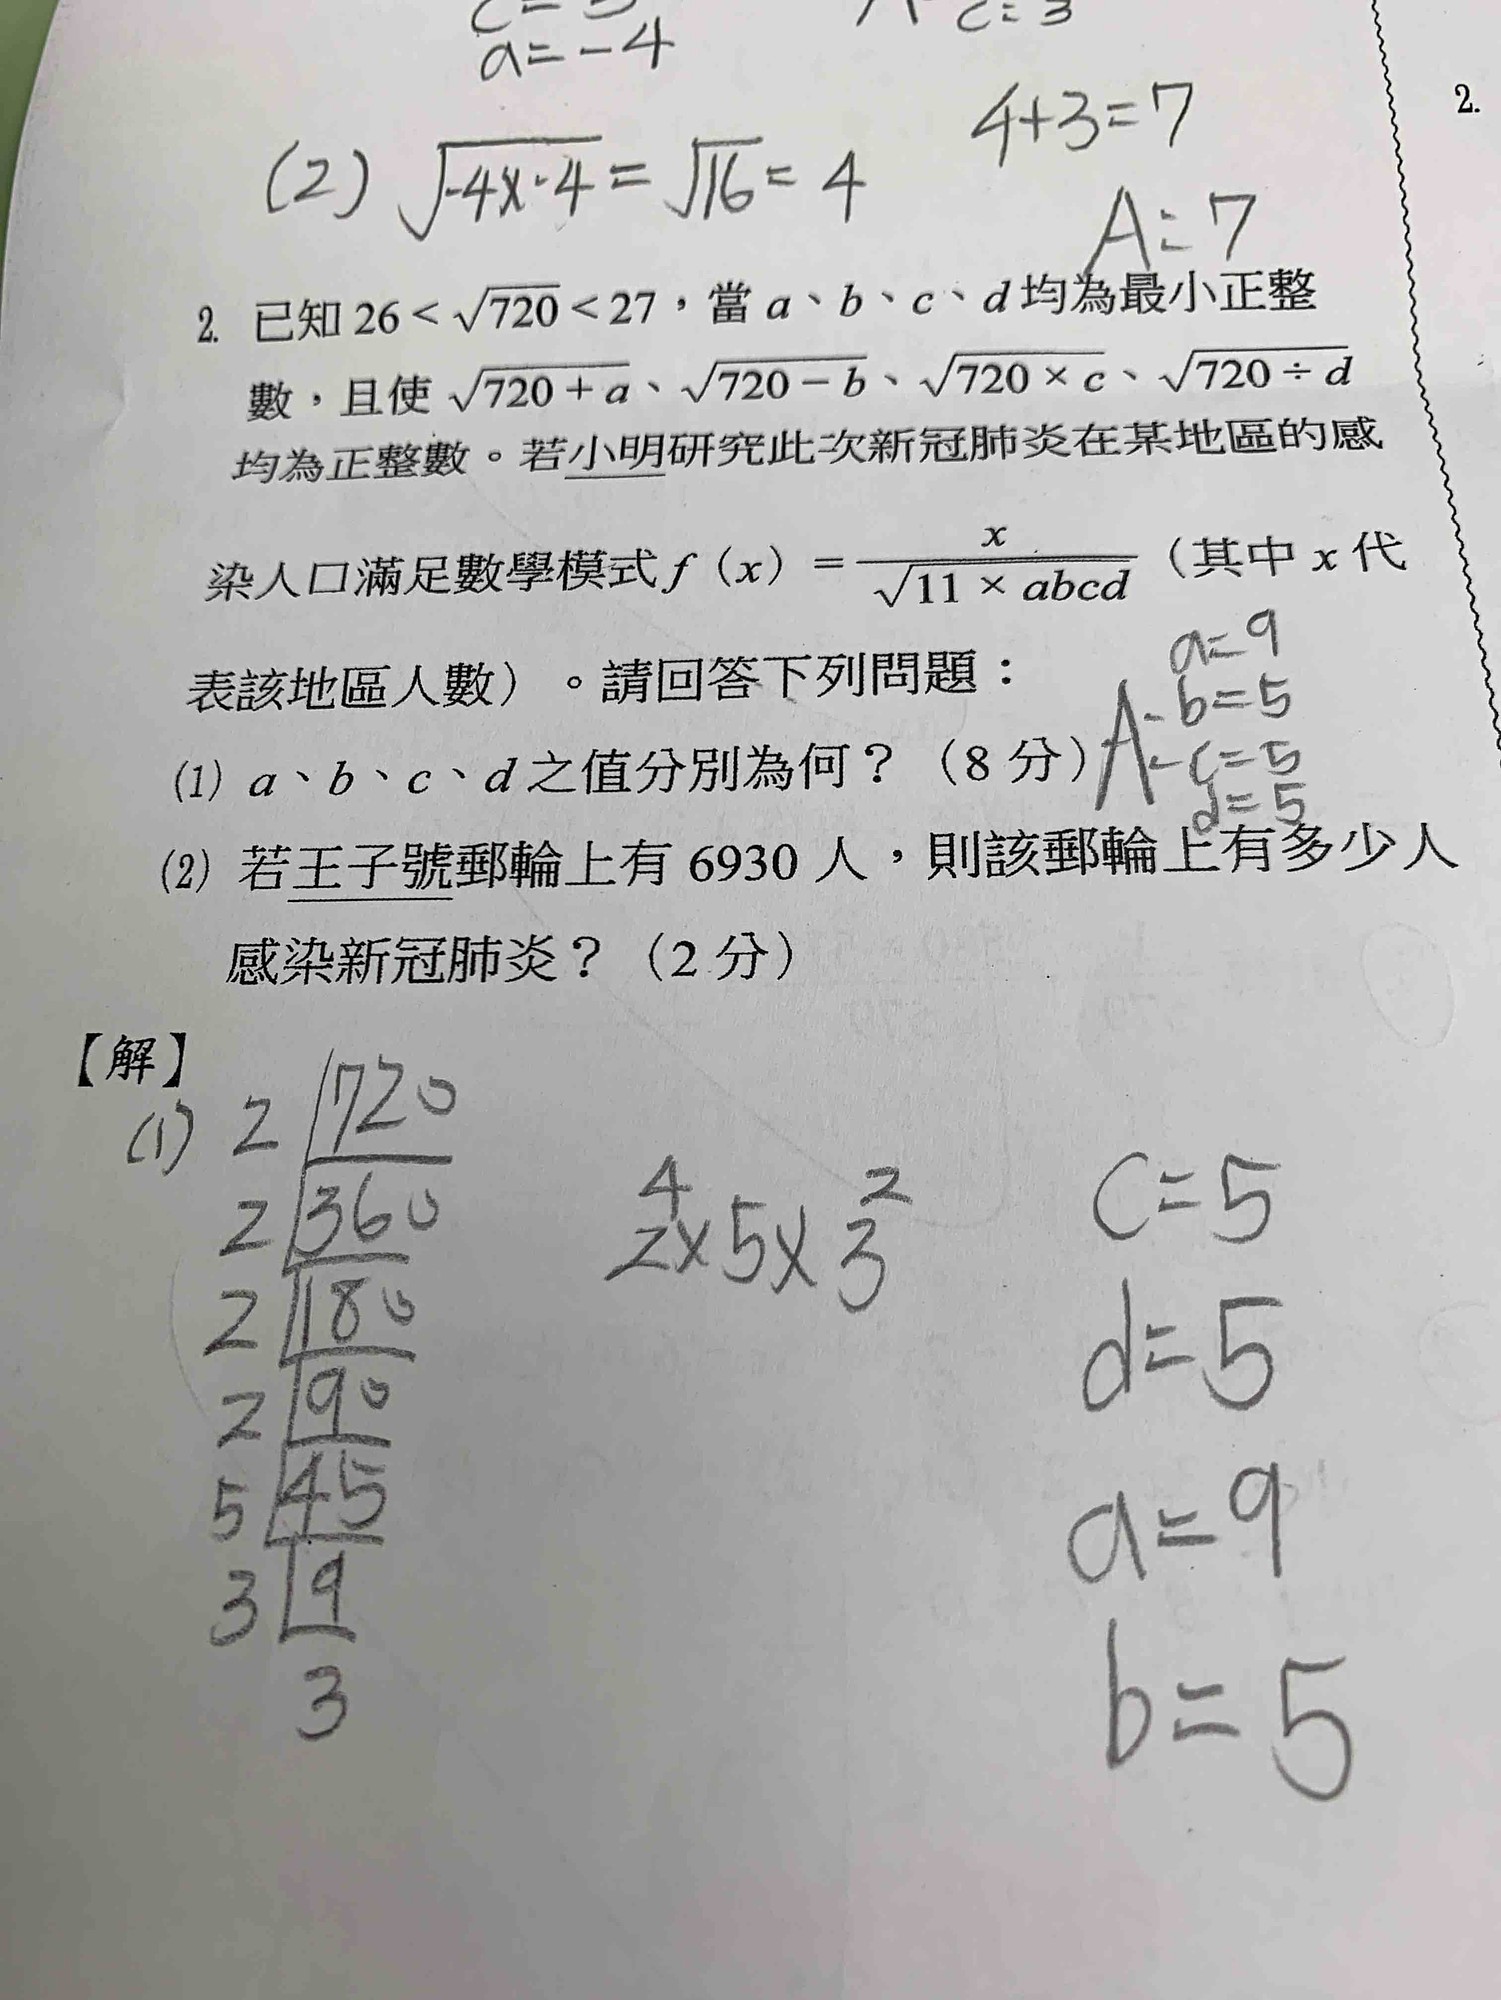 a=-4
c=3
4+3=7
2.
(2) √-4×-4=√16=4
A:7
2. 已知 26<√720<27，當 a、b、c、d 均為最小正整
數，且使 √720+a、√720-b、√720×c、√720÷d
均為正整數。若小明研究此次新冠肺炎在某地區的感
染人口滿足數學模式 f（x）= x/√11×abcd（其中 x 代
表該地區人數）。請回答下列問題：
a=9
A: b=5
c=5
d=5
(1) a、b、c、d 之值分別為何？（8 分）
(2) 若王子號郵輪上有 6930 人，則該郵輪上有多少人
感染新冠肺炎？（2 分）
【解】
(1) 2 720
2 360
2 180
2 90
5 45
3 9
3
2⁴×5×3²
c=5
d=5
a=9
b=5